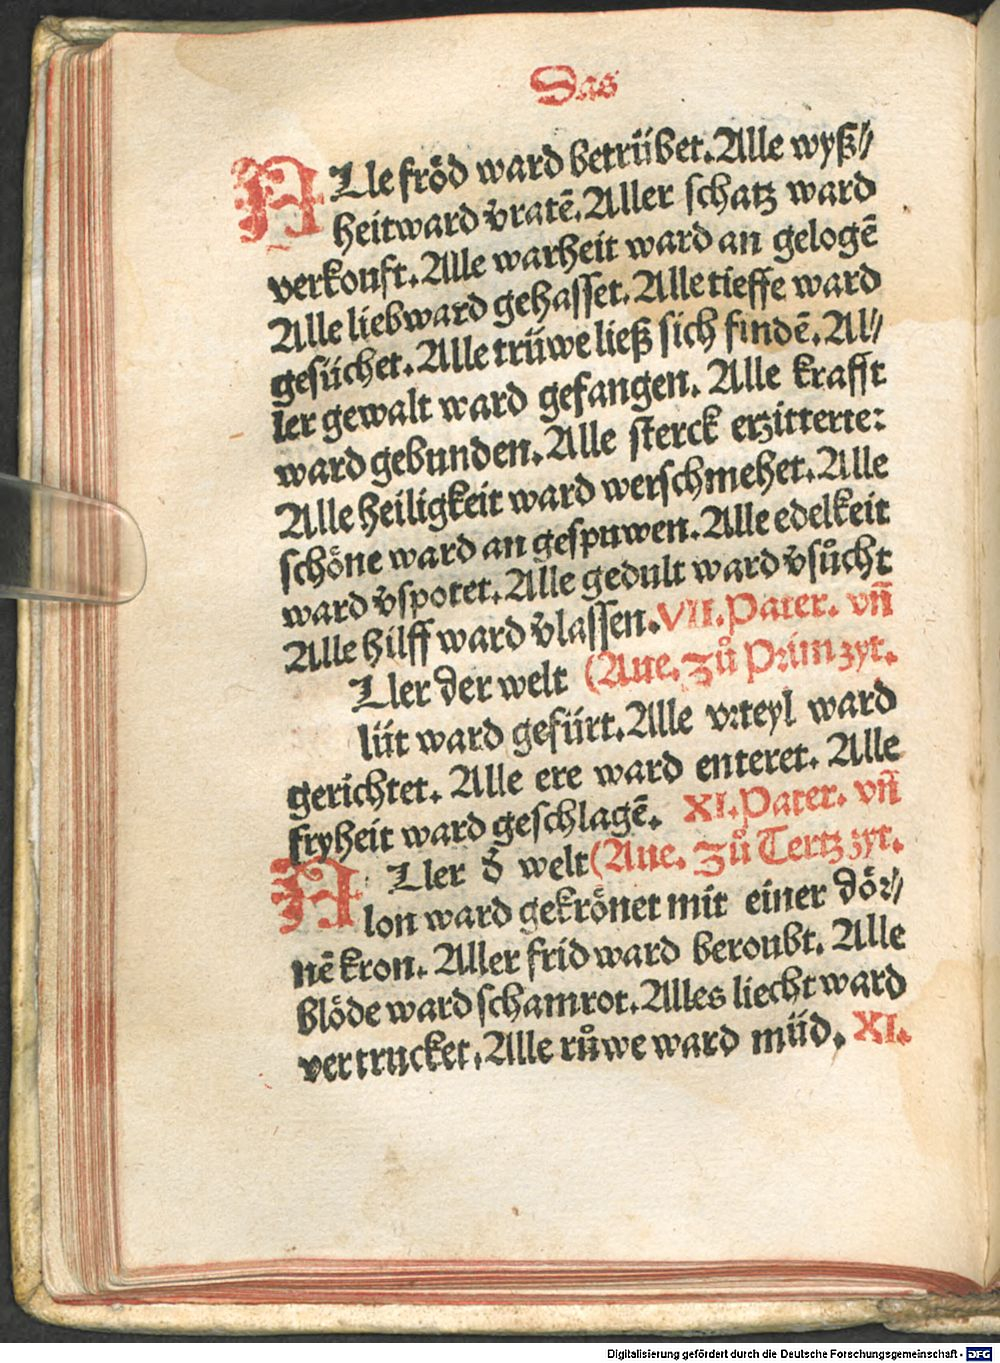 Das
ALle fröd ward betrübet. Alle wyß⸗
heit ward v̄ratē. Aller schatz ward
verkouft. Alle warheit ward an gelogē
Alle lieb ward gehasset. Alle tieffe ward
gesüchet. Alle trüwe ließ sich findē. Al⸗
ler gewalt ward gefangen. Alle krafft
ward gebunden. Alle sterck erzitterte:
Alle heiligkeit ward werschmehet. Alle
schöne ward an gespuwen. Alle edelkeit
ward v̄spotet. Alle gedult ward v̄sůcht
Alle hilff ward v̄lassen. VII. Pater. vn̄
Ller der welt (Aue. Zů Prim zyt.
lüt ward gefürt. Alle vrteyl ward
gerichtet. Alle ere ward enteret. Alle
fryheit ward geschlagē. XI. Pater. vn̄
ALler d̄ welt (Aue. Zů Tertz zyt.
lon ward gekrönet mit einer dör⸗
nē kron. Aller frid ward beroubt. Alle
blöde ward schamrot. Alles liecht ward
vertrucket. Alle růwe ward müd. XI.
Digitalisierung gefördert durch die Deutsche Forschungsgemeinschaft - DFG